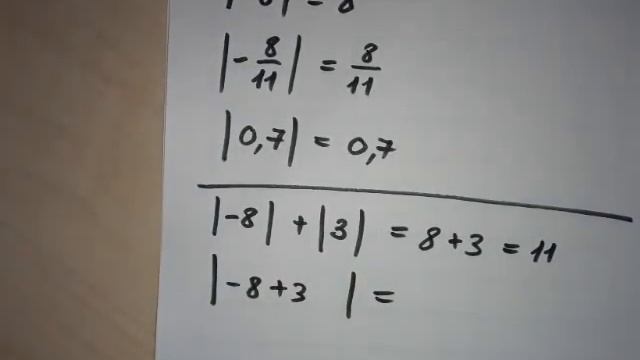 |-8/11| = 8/11
|0,7| = 0,7
|-8| + |3| = 8+3 = 11
|-8+3 | =